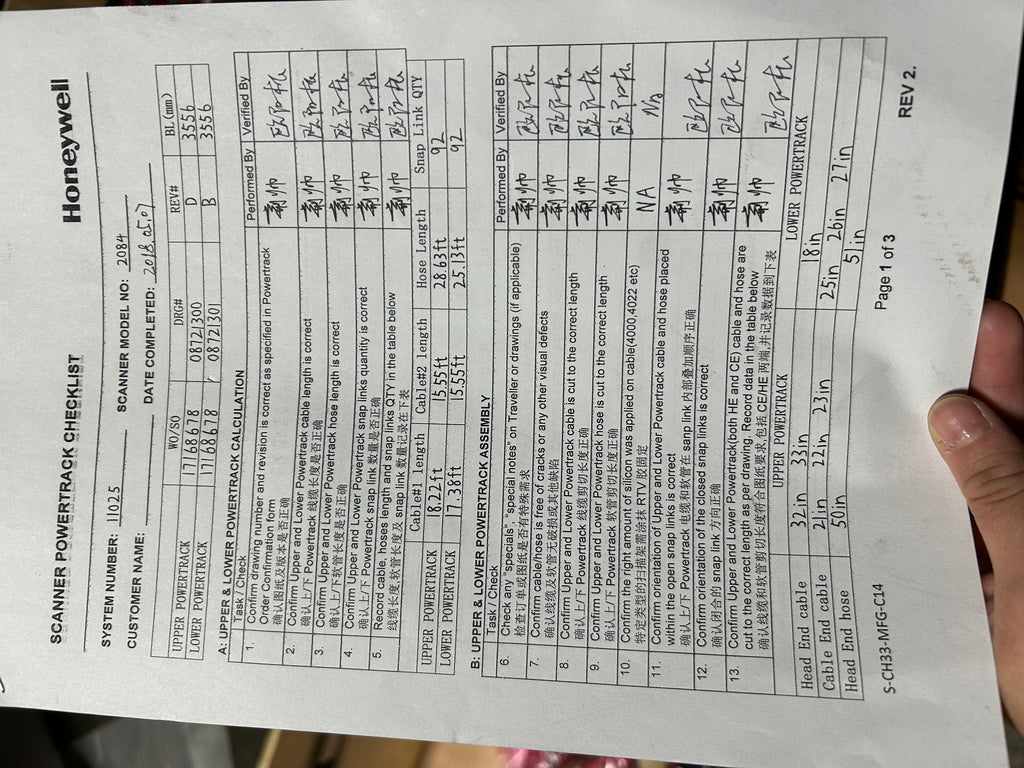 SCANNER POWERTRACK CHECKLIST Honeywell
SYSTEM NUMBER: 11025 SCANNER MODEL NO: 2084
CUSTOMER NAME: DATE COMPLETED: 2018.05.07
WO/SO DRG# REV# BL(mm)
UPPER POWERTRACK 17168678 08721300 D 3556
LOWER POWERTRACK 17168678 08721301 B 3556
A: UPPER & LOWER POWERTRACK CALCULATION
Task / Check Performed By Verified By
1. Confirm drawing number and revision is correct as specified in Powertrack
Order Confirmation form
确认图纸及版本是否正确
2. Confirm Upper and Lower Powertrack cable length is correct
确认上/下 Powertrack 线缆长度是否正确
3. Confirm Upper and Lower Powertrack hose length is correct
确认上/下软管长度是否正确
4. Confirm Upper and Lower Powertrack snap links quantity is correct
确认上/下 Powertrack snap link 数量是否正确
5. Record cable, hoses length and snap links QTY in the table below
线缆长度,软管长度及 snap link 数量记录在下表
Cable#1 length Cable#2 length Hose Length Snap Link QTY
UPPER POWERTRACK 18.22ft 15.55ft 28.63ft 92
LOWER POWERTRACK 17.38ft 15.55ft 25.13ft 92
B: UPPER & LOWER POWERTRACK ASSEMBLY
Task / Check Performed By Verified By
6. Check any "specials", "special notes" on Traveller or drawings (if applicable)
检查订单或图纸是否有特殊需求
7. Confirm cable/hose is free of cracks or any other visual defects
确认线缆及软管无破损或其他缺陷
8. Confirm Upper and Lower Powertrack cable is cut to the correct length
确认上/下 Powertrack 线缆剪切长度正确
9. Confirm Upper and Lower Powertrack hose is cut to the correct length
确认上/下 Powertrack 软管剪切长度正确
10. Confirm the right amount of silicon was applied on cable(4000,4022 etc) NA N/a
特定类型的扫描架需涂抹 RTV 胶固定
11. Confirm orientation of Upper and Lower Powertrack cable and hose placed
within the open snap links is correct
确认上/下 Powertrack 电缆和软管在 sanp link 内部叠加顺序正确
12. Confirm orientation of the closed snap links is correct
确认闭合的 snap link 方向正确
13. Confirm Upper and Lower Powertrack(both HE and CE) cable and hose are
cut to the correct length as per drawing. Record data in the table below
确认线缆和软管剪切长度符合图纸要求,包括 CE/HE 两端,并记录数据到下表
UPPER POWERTRACK LOWER POWERTRACK
Head End cable 32in 33in 18in
Cable End cable 21in 22in 23in 25in 26in 27in
Head End hose 50in 51in
S-CH33-MFG-C14 Page 1 of 3 REV 2.